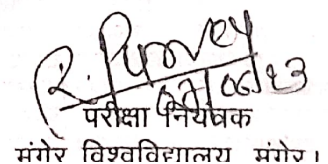 R. Purvey
07/06/23
परीक्षा नियंत्रक
मुंगेर विश्वविद्यालय, मुंगेर।